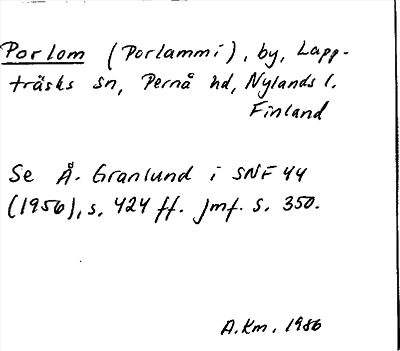 Porlom (Porlammi), by, Lapp-
träsks sn, Pernå hd, Nylands l.
Finland
Se Å. Granlund i SNF 44
(1956), s. 424 ff. Jmf. s. 350.
A.Km. 1986